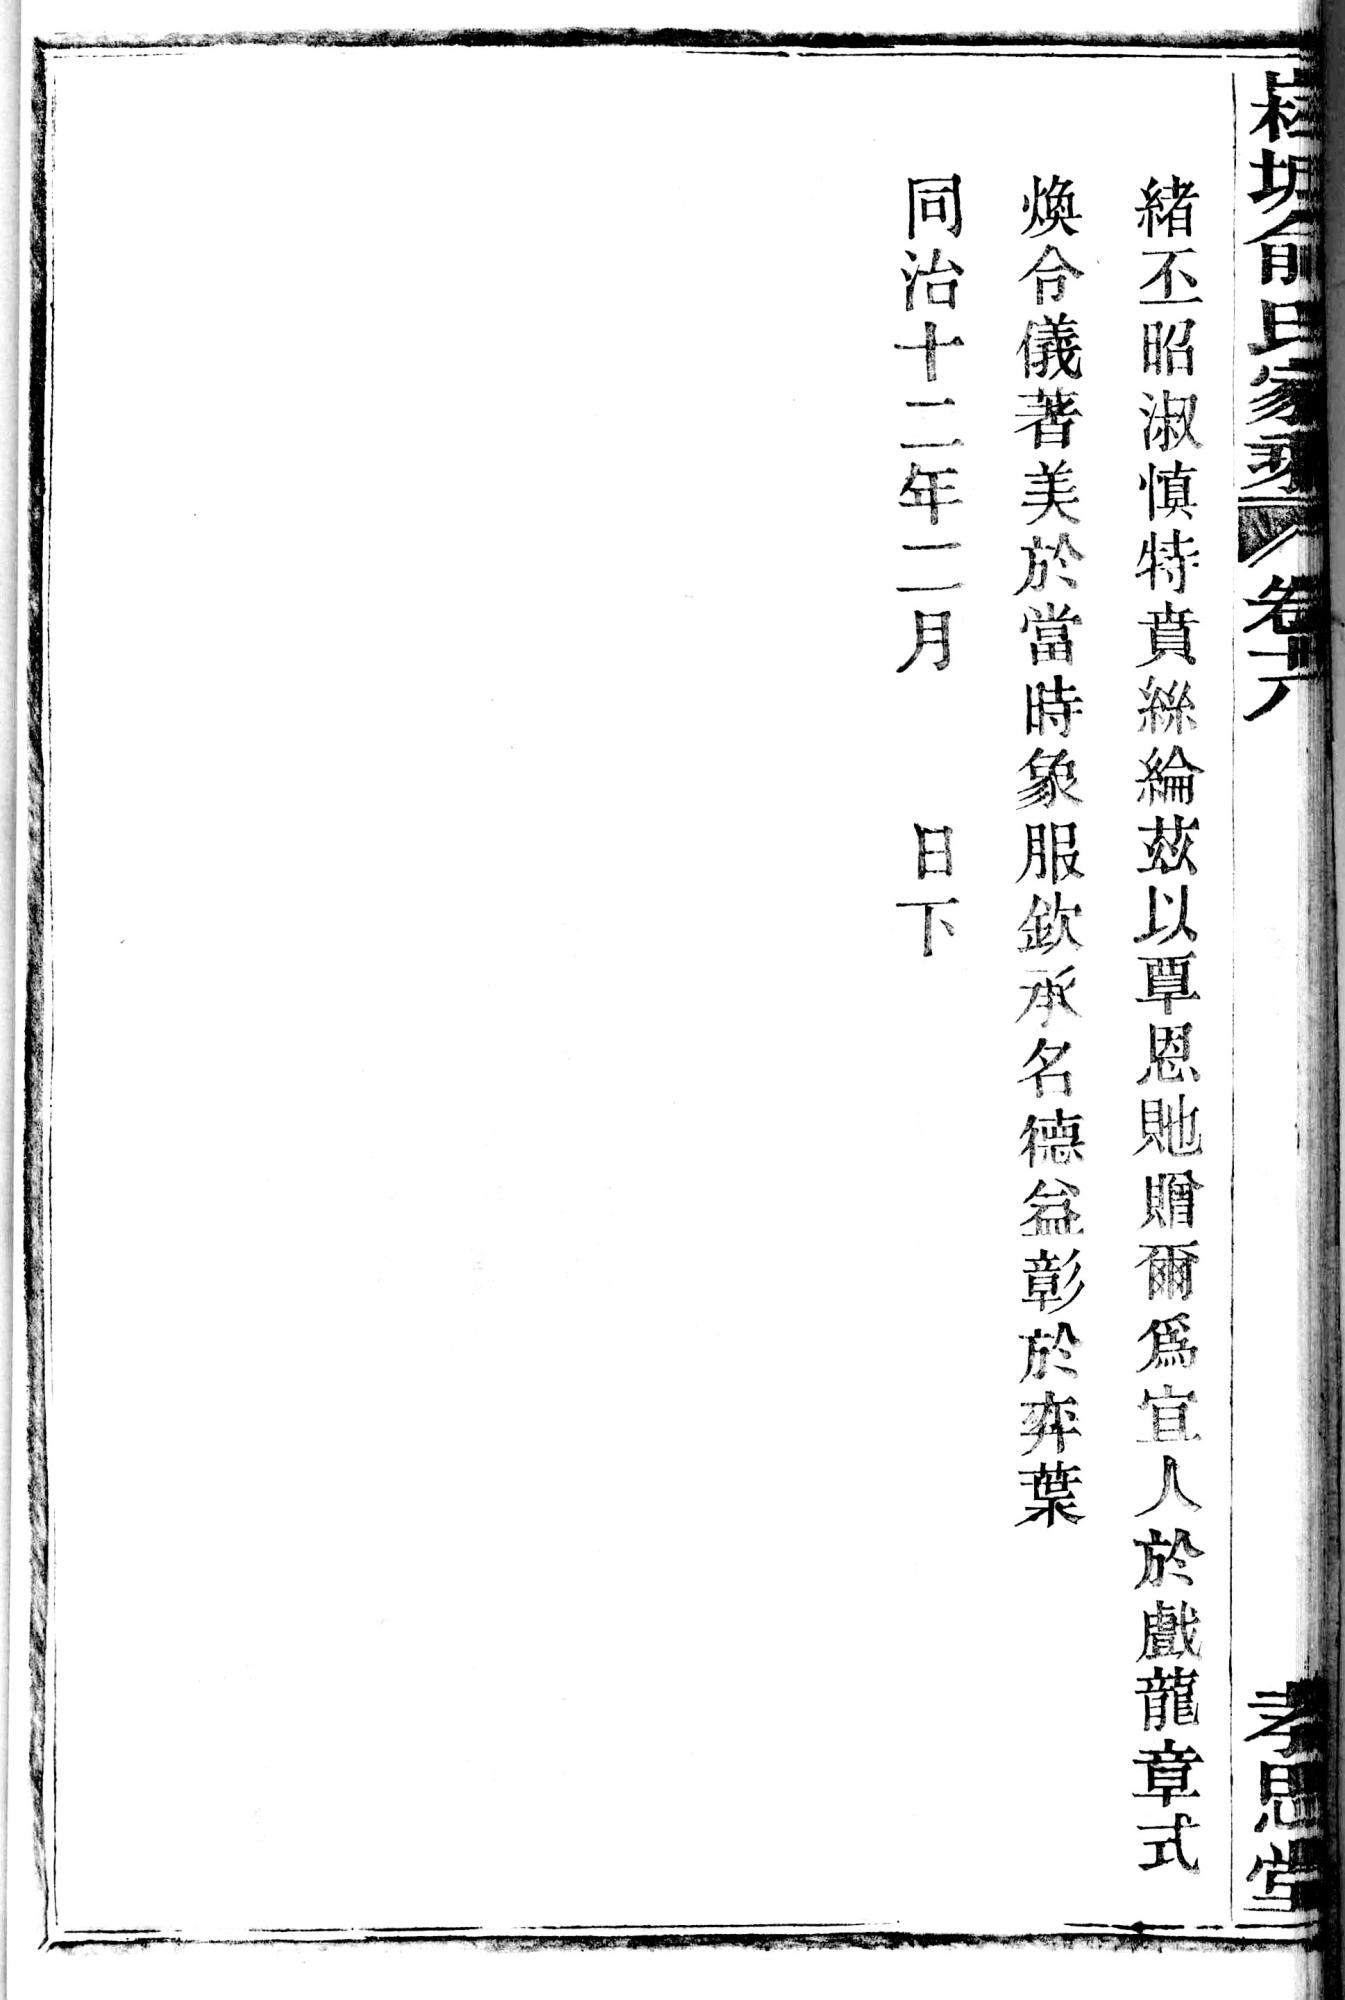 俞氏家乘 卷六 孝思堂
緒丕昭淑慎特賁絲綸茲以覃恩貤贈爾爲宜人於戲龍章式
煥令儀著美於當時象服欽承名德益彰於弈葉
同治十二年二月 日下